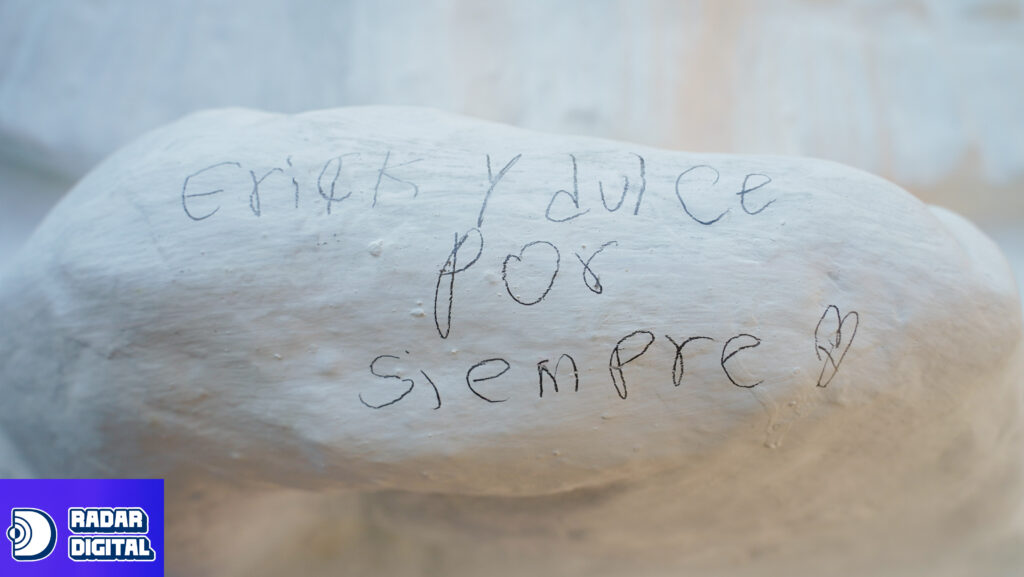 Erick y dulce
por
siempre
RADAR
DIGITAL